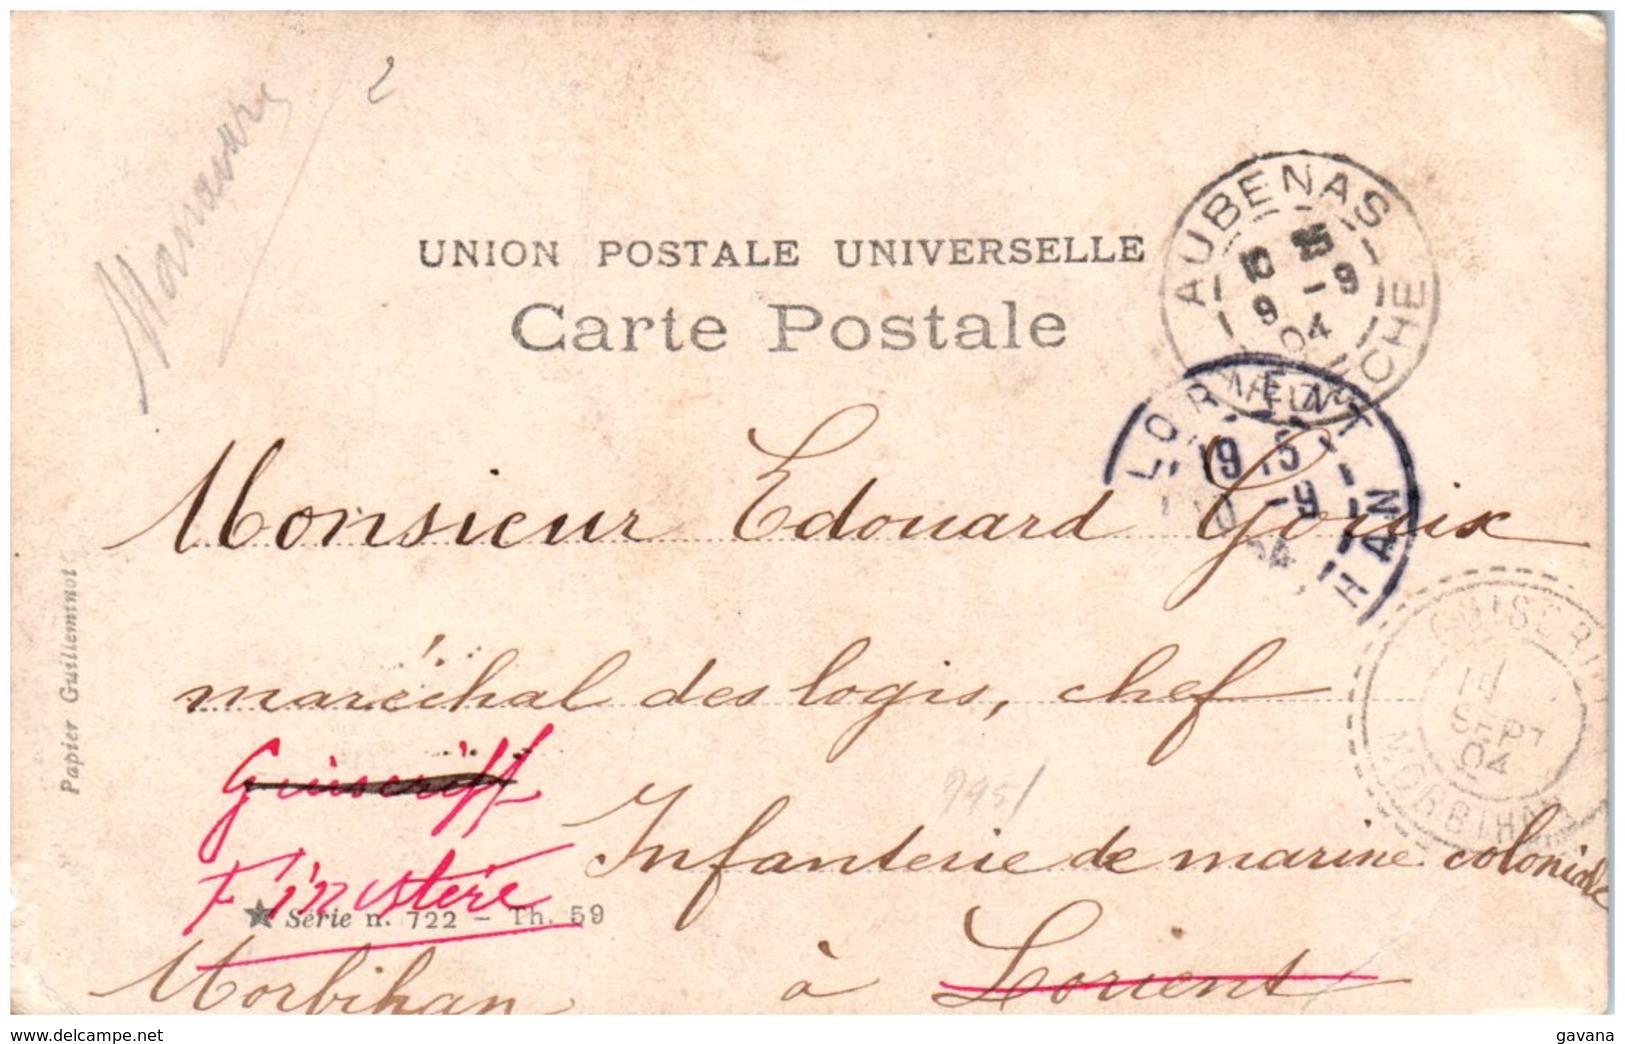 2
UNION POSTALE UNIVERSELLE
Carte Postale
AUBENAS
10 15
9 -9
04
LORIENT
19 15
10 -9
04
MORBIHAN
Monsieur Edouard
maréchal des logis, chef
GUISCRIFF
SEPT
04
MORBIHAN
Guiscriff
Infanterie de marine coloniale
Finistère
Série n. 722 - Th. 59
Morbihan à Lorient
Papier Guilleminot
delcampe.net
gavana